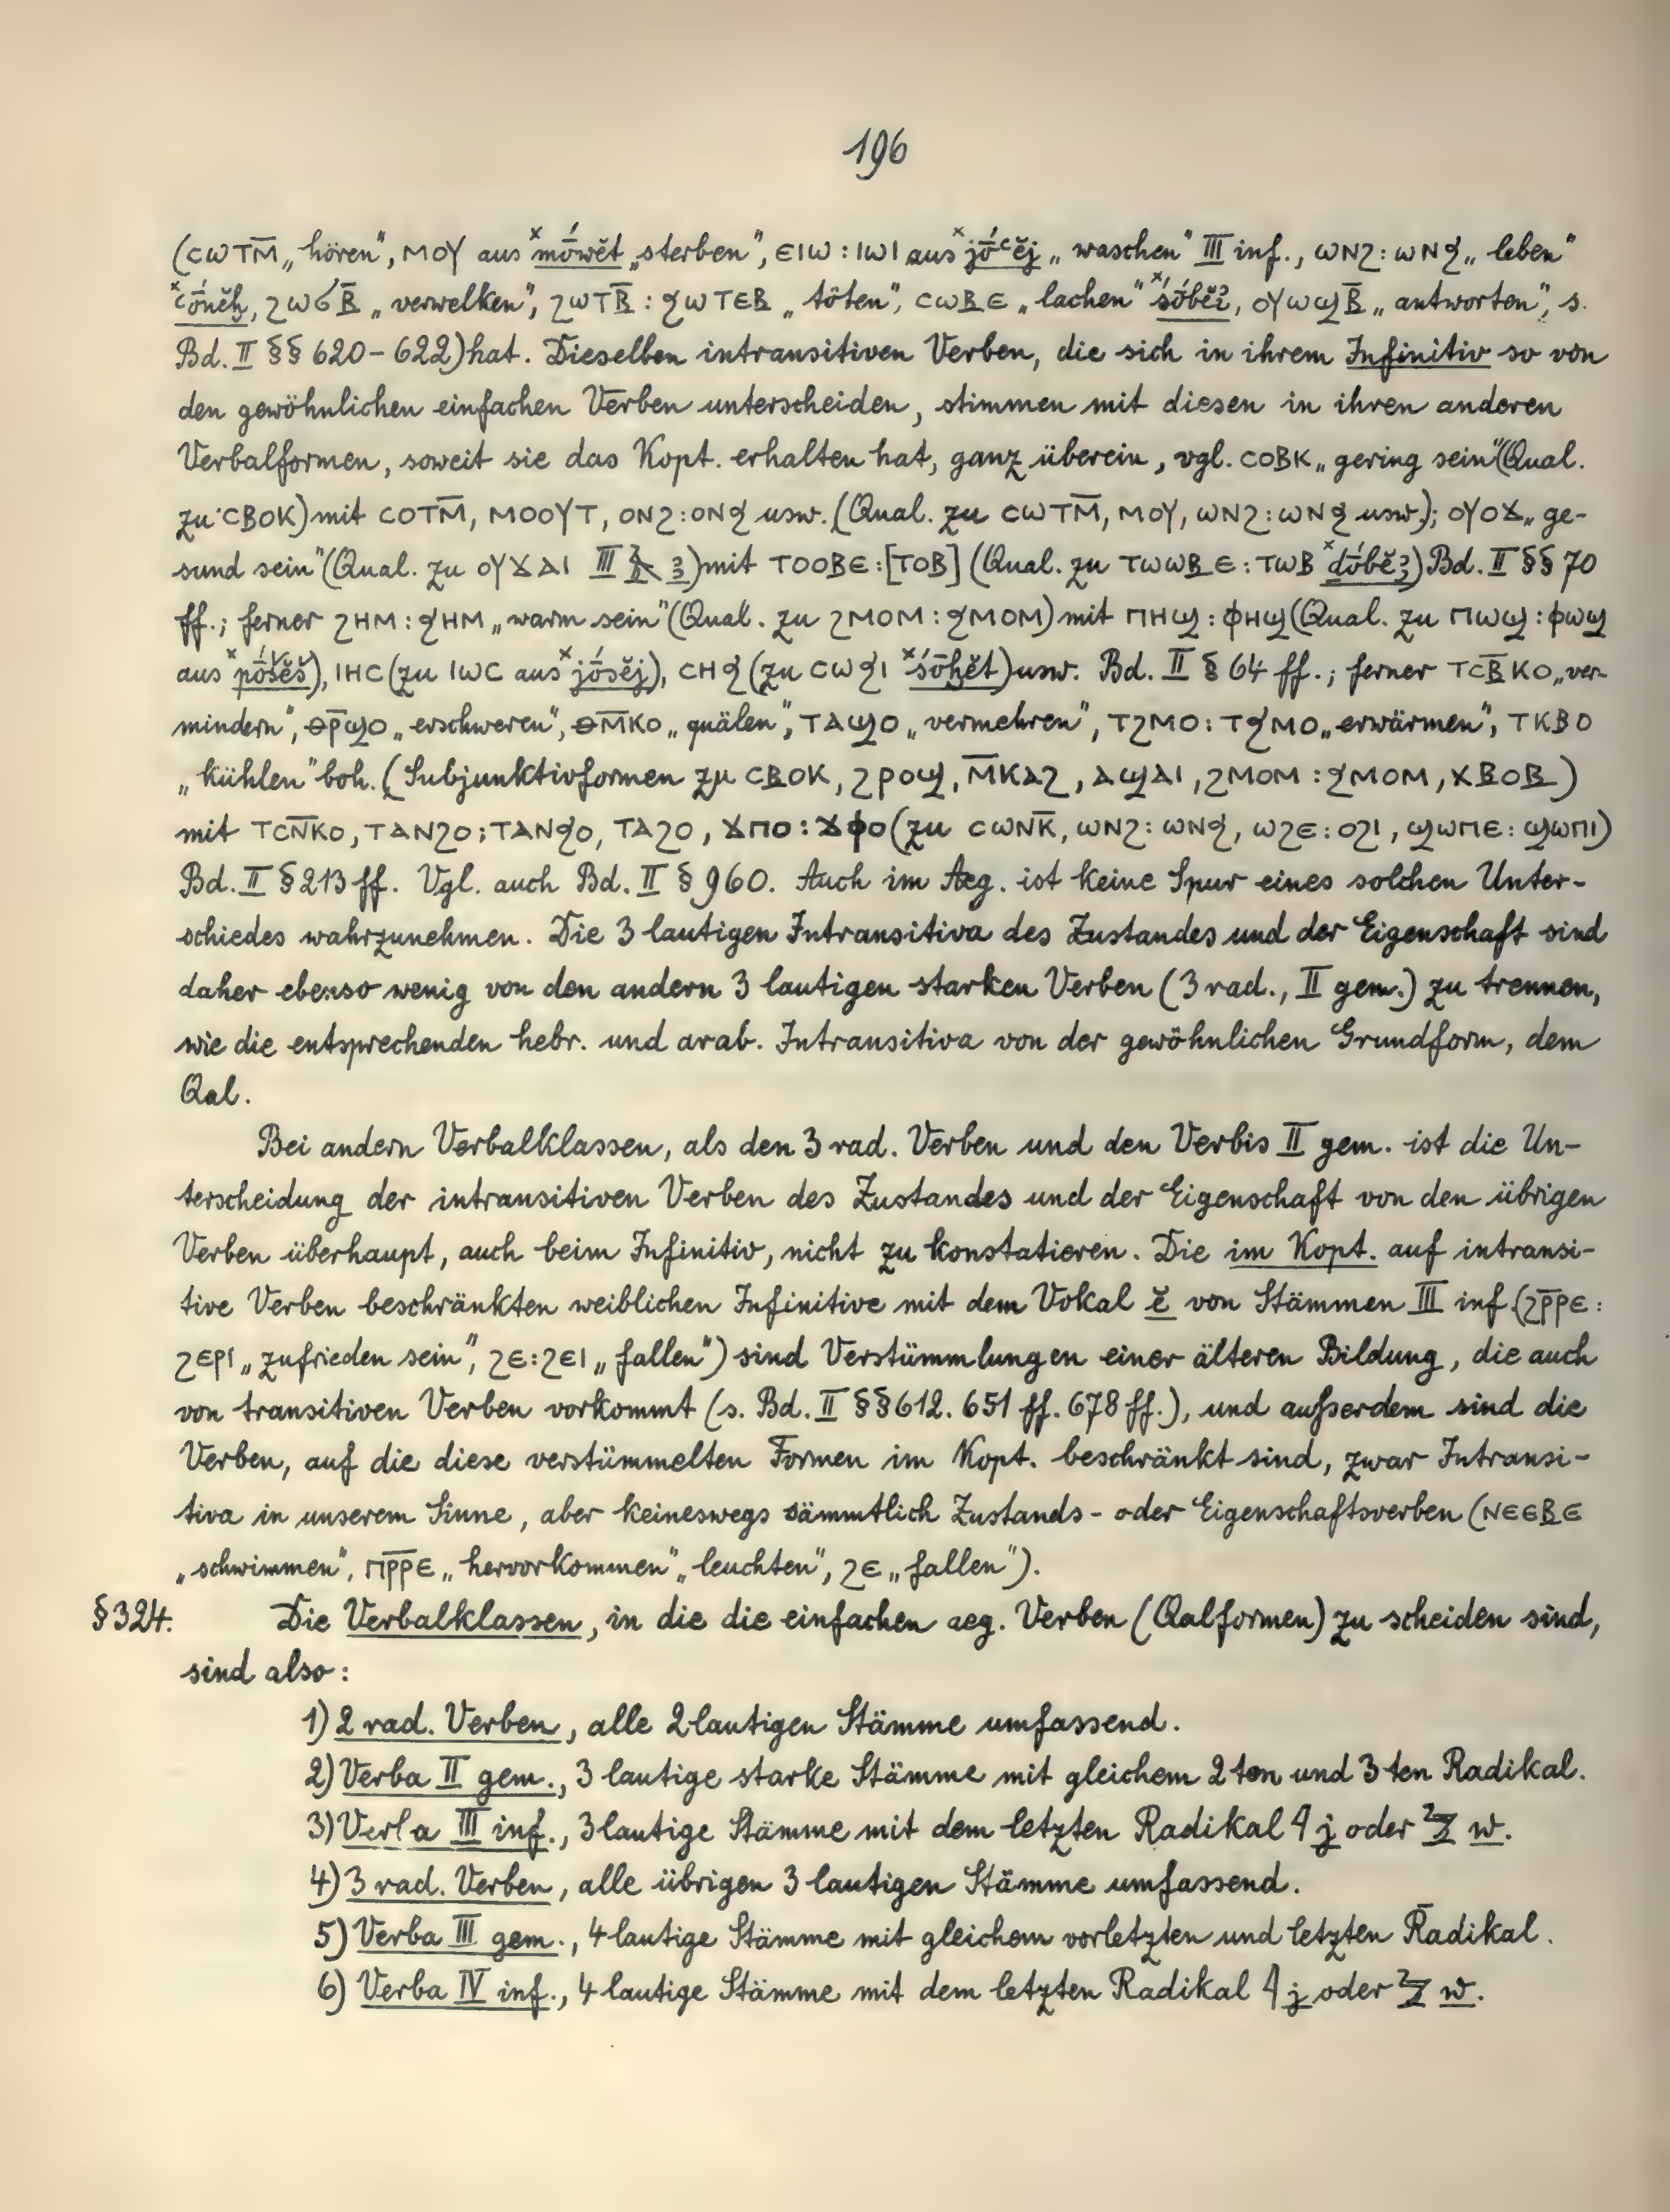 196
(ⲥⲱⲧⲙ̅ „hören", ⲙⲟⲩ aus ˣmṓwĕt „sterben", ⲉⲓⲱ : ⲓⲱⲓ aus ˣjṓꜥĕj „waschen" III inf., ⲱⲛϩ : ⲱⲛϧ „leben"
ˣꜥṓnĕḫ, ϩⲱϭⲃ̅ „verwelken", ϩⲱⲧⲃ̅ : ϧⲱⲧⲉⲃ „töten", ⲥⲱⲃⲉ „lachen" ˣśṓbĕꜣ, ⲟⲩⲱϣⲃ̅ „antworten", s.
Bd. II §§ 620-622) hat. Dieselben intransitiven Verben, die sich in ihrem Infinitiv so von
den gewöhnlichen einfachen Verben unterscheiden, stimmen mit diesen in ihren anderen
Verbalformen, soweit sie das Kopt. erhalten hat, ganz überein, vgl. ⲥⲟⲃⲕ „gering sein" (Qual.
zu ⲥⲃⲟⲕ) mit ⲥⲟⲧⲙ̅, ⲙⲟⲟⲩⲧ, ⲟⲛϩ : ⲟⲛϧ usw. (Qual. zu ⲥⲱⲧⲙ̅, ⲙⲟⲩ, ⲱⲛϩ : ⲱⲛϧ usw.); ⲟⲩⲟϫ „ge-
sund sein" (Qual. zu ⲟⲩϫⲁⲓ III 𓄿 ꜣ) mit ⲧⲟⲟⲃⲉ : [ⲧⲟⲃ] (Qual. zu ⲧⲱⲱⲃⲉ : ⲧⲱⲃ ˣdṓbĕꜣ) Bd. II §§ 70
ff.; ferner ϩⲏⲙ : ϧⲏⲙ „warm sein" (Qual. zu ϩⲙⲟⲙ : ϧⲙⲟⲙ) mit ⲡⲏϣ : ⲫⲏϣ (Qual. zu ⲡⲱϣ : ⲫⲱϣ
aus ˣpṓšĕš), ⲓⲏⲥ (zu ⲓⲱⲥ aus ˣjṓsĕj), ⲥⲏϧ (zu ⲥⲱϧⲓ ˣśṓḫĕt) usw. Bd. II § 64 ff.; ferner ⲧⲥⲃ̅ⲕⲟ „ver-
mindern", ⲑⲣ̅ϣⲟ „erschweren", ⲑⲙ̅ⲕⲟ „quälen", ⲧⲁϣⲟ „vermehren", ⲧϩⲙⲟ : ⲧϧⲙⲟ „erwärmen", ⲧⲕⲃⲟ
„kühlen" boh. (Subjunktivformen zu ⲥⲃⲟⲕ, ϩⲣⲟϣ, ⲙ̅ⲕⲁϩ, ⲁϣⲁⲓ, ϩⲙⲟⲙ : ϧⲙⲟⲙ, ⲭⲃⲟⲃ)
mit ⲧⲥⲛ̅ⲕⲟ, ⲧⲁⲛϩⲟ : ⲧⲁⲛϧⲟ, ⲧⲁϩⲟ, ϫⲡⲟ : ϫⲫⲟ (zu ⲥⲱⲛⲕ̅, ⲱⲛϩ : ⲱⲛϧ, ⲱϩⲉ : ⲟϩⲓ, ϣⲱⲡⲉ : ϣⲱⲡⲓ)
Bd. II § 213 ff. Vgl. auch Bd. II § 960. Auch im Aeg. ist keine Spur eines solchen Unter-
schiedes wahrzunehmen. Die 3 lautigen Intransitiva des Zustandes und der Eigenschaft sind
daher ebenso wenig von den andern 3 lautigen starken Verben (3 rad., II gem.) zu trennen,
wie die entsprechenden hebr. und arab. Intransitiva von der gewöhnlichen Grundform, dem
Qal.
Bei andern Verbalklassen, als den 3 rad. Verben und den Verbis II gem. ist die Un-
terscheidung der intransitiven Verben des Zustandes und der Eigenschaft von den übrigen
Verben überhaupt, auch beim Infinitiv, nicht zu konstatieren. Die im Kopt. auf intransi-
tive Verben beschränkten weiblichen Infinitive mit dem Vokal ĕ von Stämmen III inf. (ϩⲣ̅ⲣⲉ :
ϩⲉⲣⲓ „zufrieden sein", ϩⲉ : ϩⲉⲓ „fallen") sind Verstümmlungen einer älteren Bildung, die auch
von transitiven Verben vorkommt (s. Bd. II §§ 612. 651 ff. 678 ff.), und außerdem sind die
Verben, auf die diese verstümmelten Formen im Kopt. beschränkt sind, zwar Intransi-
tiva in unserem Sinne, aber keineswegs sämmtlich Zustands- oder Eigenschaftsverben (ⲛⲉⲉⲃⲉ
„schwimmen", ⲡⲣ̅ⲣⲉ „hervorkommen" „leuchten", ϩⲉ „fallen").
§ 324. Die Verbalklassen, in die die einfachen aeg. Verben (Qalformen) zu scheiden sind,
sind also:
1) 2 rad. Verben, alle 2 lautigen Stämme umfassend.
2) Verba II gem., 3 lautige starke Stämme mit gleichem 2 ten und 3 ten Radikal.
3) Verba III inf., 3 lautige Stämme mit dem letzten Radikal 𓇋 j oder 𓅱 w.
4) 3 rad. Verben, alle übrigen 3 lautigen Stämme umfassend.
5) Verba III gem., 4 lautige Stämme mit gleichem vorletzten und letzten Radikal.
6) Verba IV inf., 4 lautige Stämme mit dem letzten Radikal 𓇋 j oder 𓅱 w.